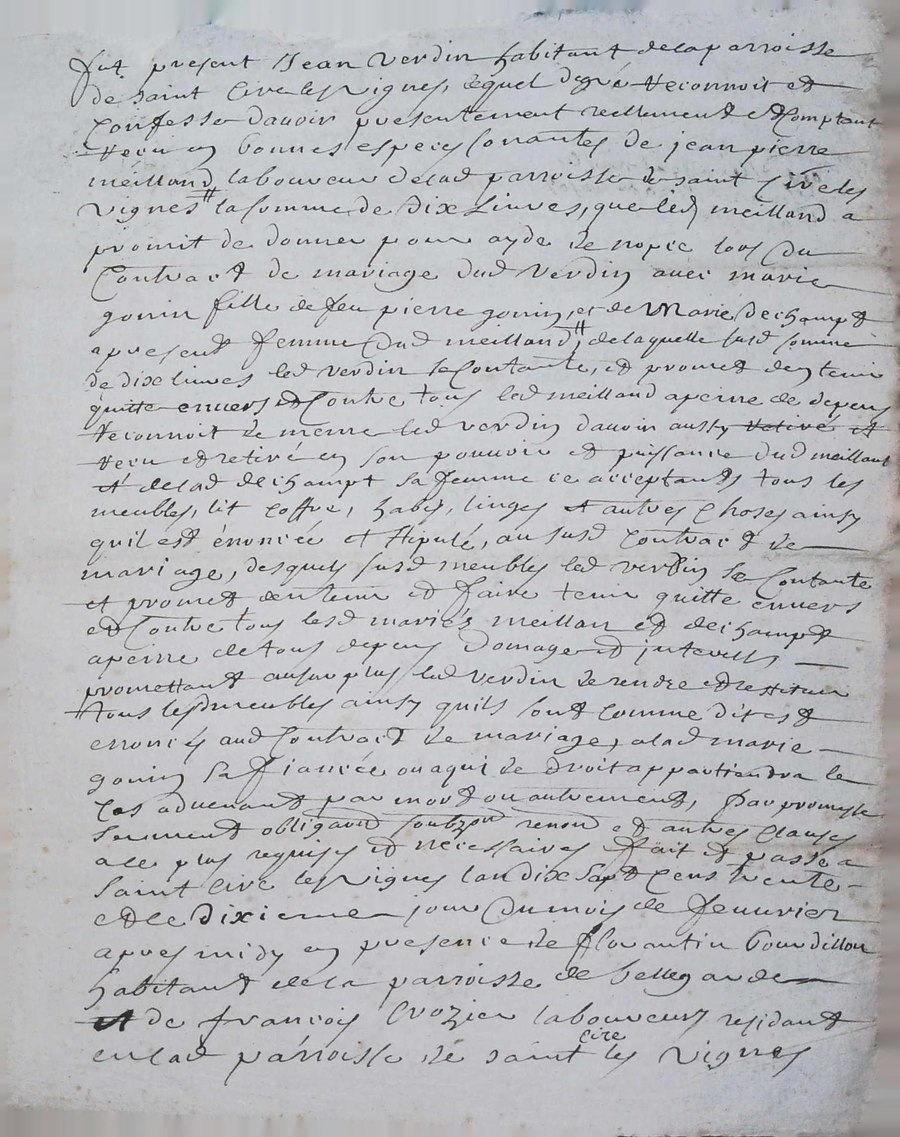 fut present Jean verdin habitant de la parroisse
de saint Cire les vignes, lequel de gré reconnoit et
Confesse davoir presentement reellement et Comptant
receu en bonnes especes sonantes de jean pierre
meilland laboureur delad parroisse de saint Cire les
vignes la somme de dix Livres, que led meilland a
promit de donner pour ayde de nopce lors du
Contract de mariage dud verdin avec marie
gonin fille de feu pierre gonin, et de Marie dechampt
apresent femme dud meilland, de laquelle susd somme
de dix livres led verdin se Contante, et promet den tenir
quitte envers et Contre tous led meilland apeine de depens
reconnoit de meme led verdin davoir aussy retiré et
receu et retiré en son pouvoir et puissance dud meilland
et delad dechampt sa femme ce acceptants tous les
meubles, lit coffre, habis, linges et autres choses ainsy
quil est énoncée et stipulé, au susd contract de
mariage, desquels susd meubles led verdin se Contante
et promet den tenir et faire tenir quitte envers
et Contre tous lesd mariés meillan et dechampt
apeine de tous depens domage et interests
promettant au surplus led verdin de rendre et restituer
tous lesd meubles ainsy quils sont comme dit est
enoncés aud Contract de mariage, a lad marie
gonin sa fiancée ou a qui de droit appartiendra le
cas advenant par mort ou autrement, par promesse
serment obligaon soubzon renond et autres clauses
a ce plus requises et necessaires fait et passé a
saint Cire les vignes lan dix sept cens trente
et le dixieme jour du mois de feuvrier
apres midy en presence de florantin bourdillon
habitant de la parroisse de bellegarde
et de françois Crozier laboureurs residant
en lad parroisse de saint cire les vignes